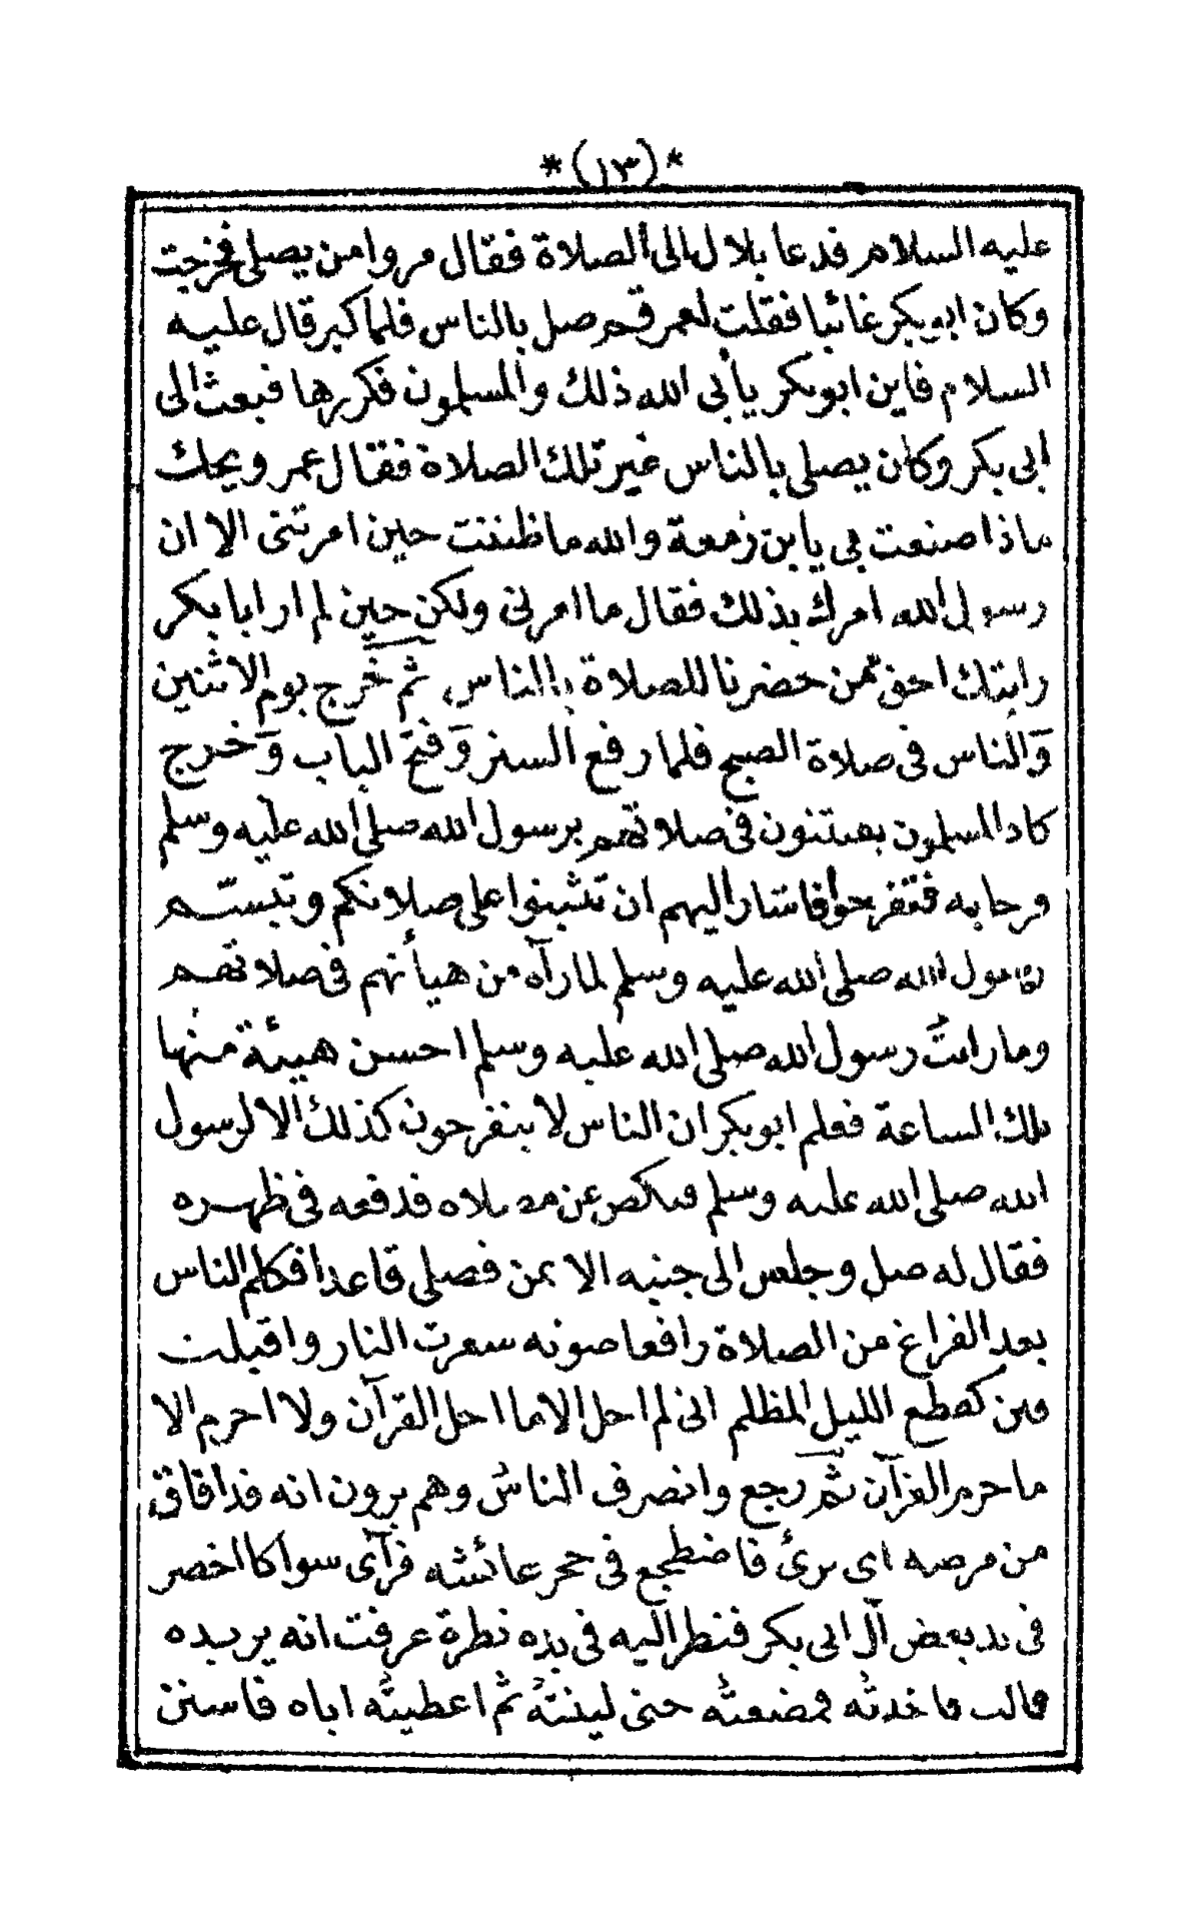 *(١٣)*
عليه السلام فدعا بلال الى الصلاة فقال مروا من يصلى فخرجت
وكان ابو بكر غائبا فقلت لعمر قم صل بالناس فلما كبر قال عليه
السلام فاين ابو بكر يأبى الله ذلك والمسلمون فكررها فبعث الى
ابى بكر وكان يصلى بالناس غير تلك الصلاة فقال عمر ويحك
ماذا صنعت بى يا بن زمعة والله ما ظننت حين امرتنى الا ان
رسول الله امرك بذلك فقال ما امرنى ولكن حين لم ار ابا بكر
رايتك احق ممن حضرنا للصلاة بالناس ثم خرج يوم الاثنين
والناس فى صلاة الصبح فلما رفع الستر وفتح الباب وخرج
كاد المسلمون يفتنون فى صلاتهم برسول الله صلى الله عليه وسلم
فرحا به فتفرجوا فاشار اليهم ان تثبتوا على صلاتكم وتبسّم
رسول الله صلى الله عليه وسلم لما رآه من هيأتهم فى صلاتهم
وما رايتُ رسول الله صلى الله عليه وسلم احسن هيئة منها
تلك الساعة فعلم ابو بكر ان الناس لا يتفرجون كذلك الا لرسول
الله صلى الله عليه وسلم فنكص عن مصلاه فدفعه فى ظهره
فقال له صل وجلس الى جنبه الايمن فصلى قاعدا فكلم الناس
بعد الفراغ من الصلاة رافعا صوته سعرت النار واقبلت
فتن كقطع الليل المظلم انى لم احل الا ما احل القرآن ولا احرم الا
ما حرم القرآن ثم رجع وانصرف الناس وهم يرون انه قد افاق
من مرضه اى برئ فاضطجع فى حجر عائشه فرآى سواكا اخضر
فى يد بعض آل ابى بكر فنظر اليه فى يده نظرة عرفت انه يريده
قالت فاخذتُه فمضغتُه حتى لينتهُ ثم اعطيتُه اياه فاستن